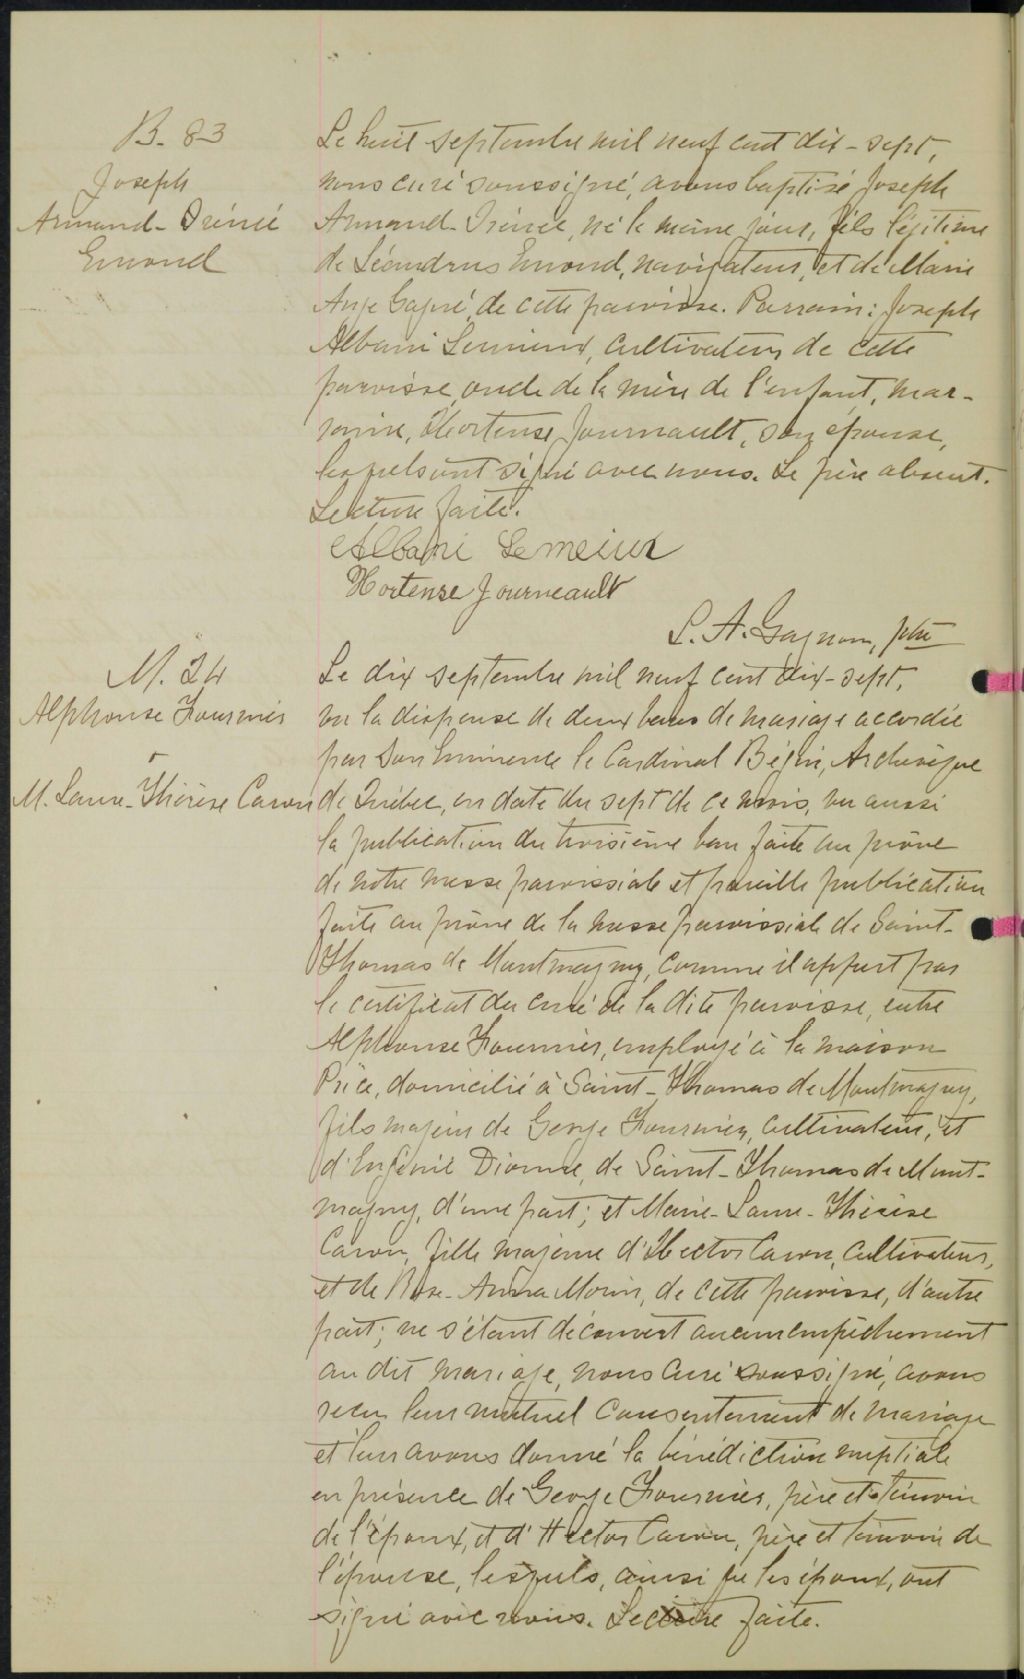 B. 83
Joseph
Armand-Irénée
Emond
Le huit septembre mil neuf cent dix-sept,
nous curé soussigné, avons baptisé Joseph
Armand-Irénée, né le même jour, fils légitime
de Léandrus Emond, navigateur, et de Marie
Ange Gagné, de cette paroisse. Parrain: Joseph
Albani Lemieux, cultivateur de cette
paroisse, oncle de la mère de l'enfant, mar-
raine, Hortense Journault, son épouse,
lesquels ont signé avec nous. Le père absent.
Lecture faite.
Albani Lemieux
Hortense Journeault
L. A. Gagnon, ptre
M. 24
Alphonse Fournier
et
M. Laure-Thérèse Caron
Le dix septembre mil neuf cent dix-sept,
vu la dispense de deux bans de mariage accordée
par Son Eminence le Cardinal Bégin, Archevêque
de Québec, en date du sept de ce mois, vu aussi
la publication du troisième ban faite au prône
de notre messe paroissiale et pareille publication
faite au prône de la messe paroissiale de Saint-
Thomas de Montmagny, comme il appert par
le certificat du curé de la dite paroisse, entre
Alphonse Fournier, employé à la maison
Price, domicilié à Saint-Thomas de Montmagny,
fils majeur de George Fournier, cultivateur, et
d'Eugénie Dionne, de Saint-Thomas de Mont-
magny, d'une part; et Marie-Laure-Thérèse
Caron, fille majeure d'Hector Caron, cultivateur,
et de Rose-Anna Morin, de cette paroisse, d'autre
part; ne s'étant découvert aucun empêchement
au dit mariage, nous curé soussigné, avons
reçu leur mutuel consentement de mariage
et leur avons donné la bénédiction nuptiale
en présence de George Fournier, père et témoin
de l'époux, et d'Hector Caron, père et témoin de
l'épouse, lesquels, ainsi que les époux, ont
signé avec nous. Lecture faite.